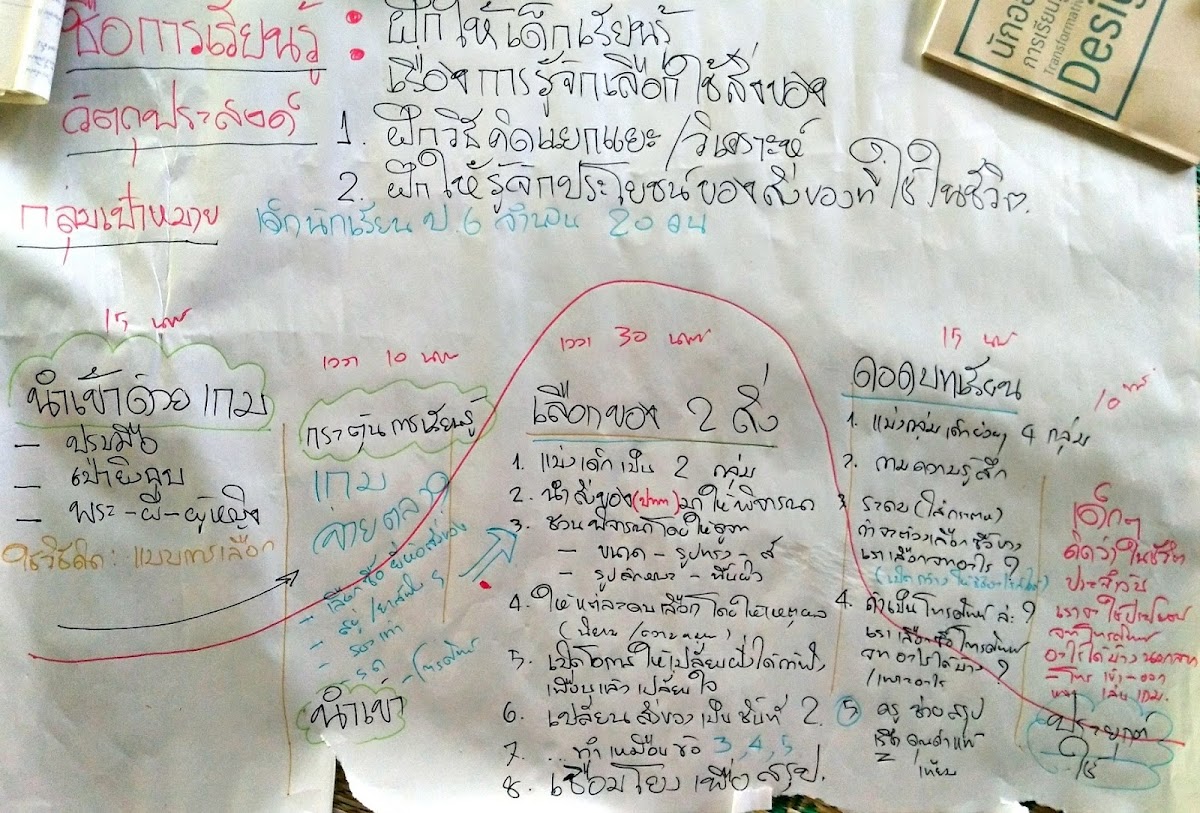 ชื่อการเรียนรู้ : ฝึกให้เด็กเรียนรู้
เรื่องการรู้จักเลือกใช้สิ่งของ
วัตถุประสงค์
1. ฝึกวิธีคิดแยกแยะ/วิเคราะห์
2. ฝึกให้รู้จักประโยชน์ของสิ่งของที่ใช้ในชีวิต.
กลุ่มเป้าหมาย เด็กนักเรียน ป.6 จำนวน 20 คน
นักออ
การเรียนรู้
Transformativ
Desig
15 นาที
นำเข้าด้วยเกม
- ปรบมือ
- เป่ายิงฉุบ
- พระ-ผี-ผู้หญิง
ใช้วิธีคิด: แบบการเลือก
เวลา 10 นาที
กระตุ้นการเรียนรู้
เกม
จ่ายตลาด
- เลือกซื้อ
- รองเท้า
- รถ
- โทรศัพท์
นำเข้า
เวลา 30 นาที
เลือกของ 2 สิ่ง
1. แบ่งเด็กเป็น 2 กลุ่ม
2. นำสิ่งของ(ปากกา)มาให้พิจารณา
3. ชวนพิจารณาโดยให้ดูจาก
- ขนาด - รูปทรง - สี
- รูปลักษณะ - พื้นผิว
4. ให้แต่ละคนเลือกโดยให้เหตุผล
5. เปิดโอกาสให้เปลี่ยนฝั่งได้ถ้าฟัง
เพื่อนแล้วเปลี่ยนใจ
6. เปลี่ยนสิ่งของเป็นชิ้นที่ 2.
7. ... ทำเหมือนข้อ 3,4,5
8. เชื่อมโยงเพื่อสรุป.
15 นาที
ถอดบทเรียน
1. แบ่งกลุ่มเด็กย่อยๆ 4 กลุ่ม
2. ถามความรู้สึก
3 ระดม (ใส่กระดาษ)
ถ้าจะต้องเลือกซื้อของ
เราเลือกจากอะไร ?
4. ถ้าเป็นโทรศัพท์ล่ะ ?
เราเลือกซื้อโทรศัพท์
จากอะไรได้บ้าง ?
/เพราะอะไร
5 ครูช่วยสรุป
เรื่องคุณค่าแท้
/เทียม
10 นาที
เด็กๆ
คิดว่าในชีวิต
ประจำวัน
เราจะใช้ประโยชน์
จากโทรศัพท์
อะไรได้บ้างนอกจาก
โทรเข้า-ออก
เล่นเกม.
ประยุกต์
ใช้